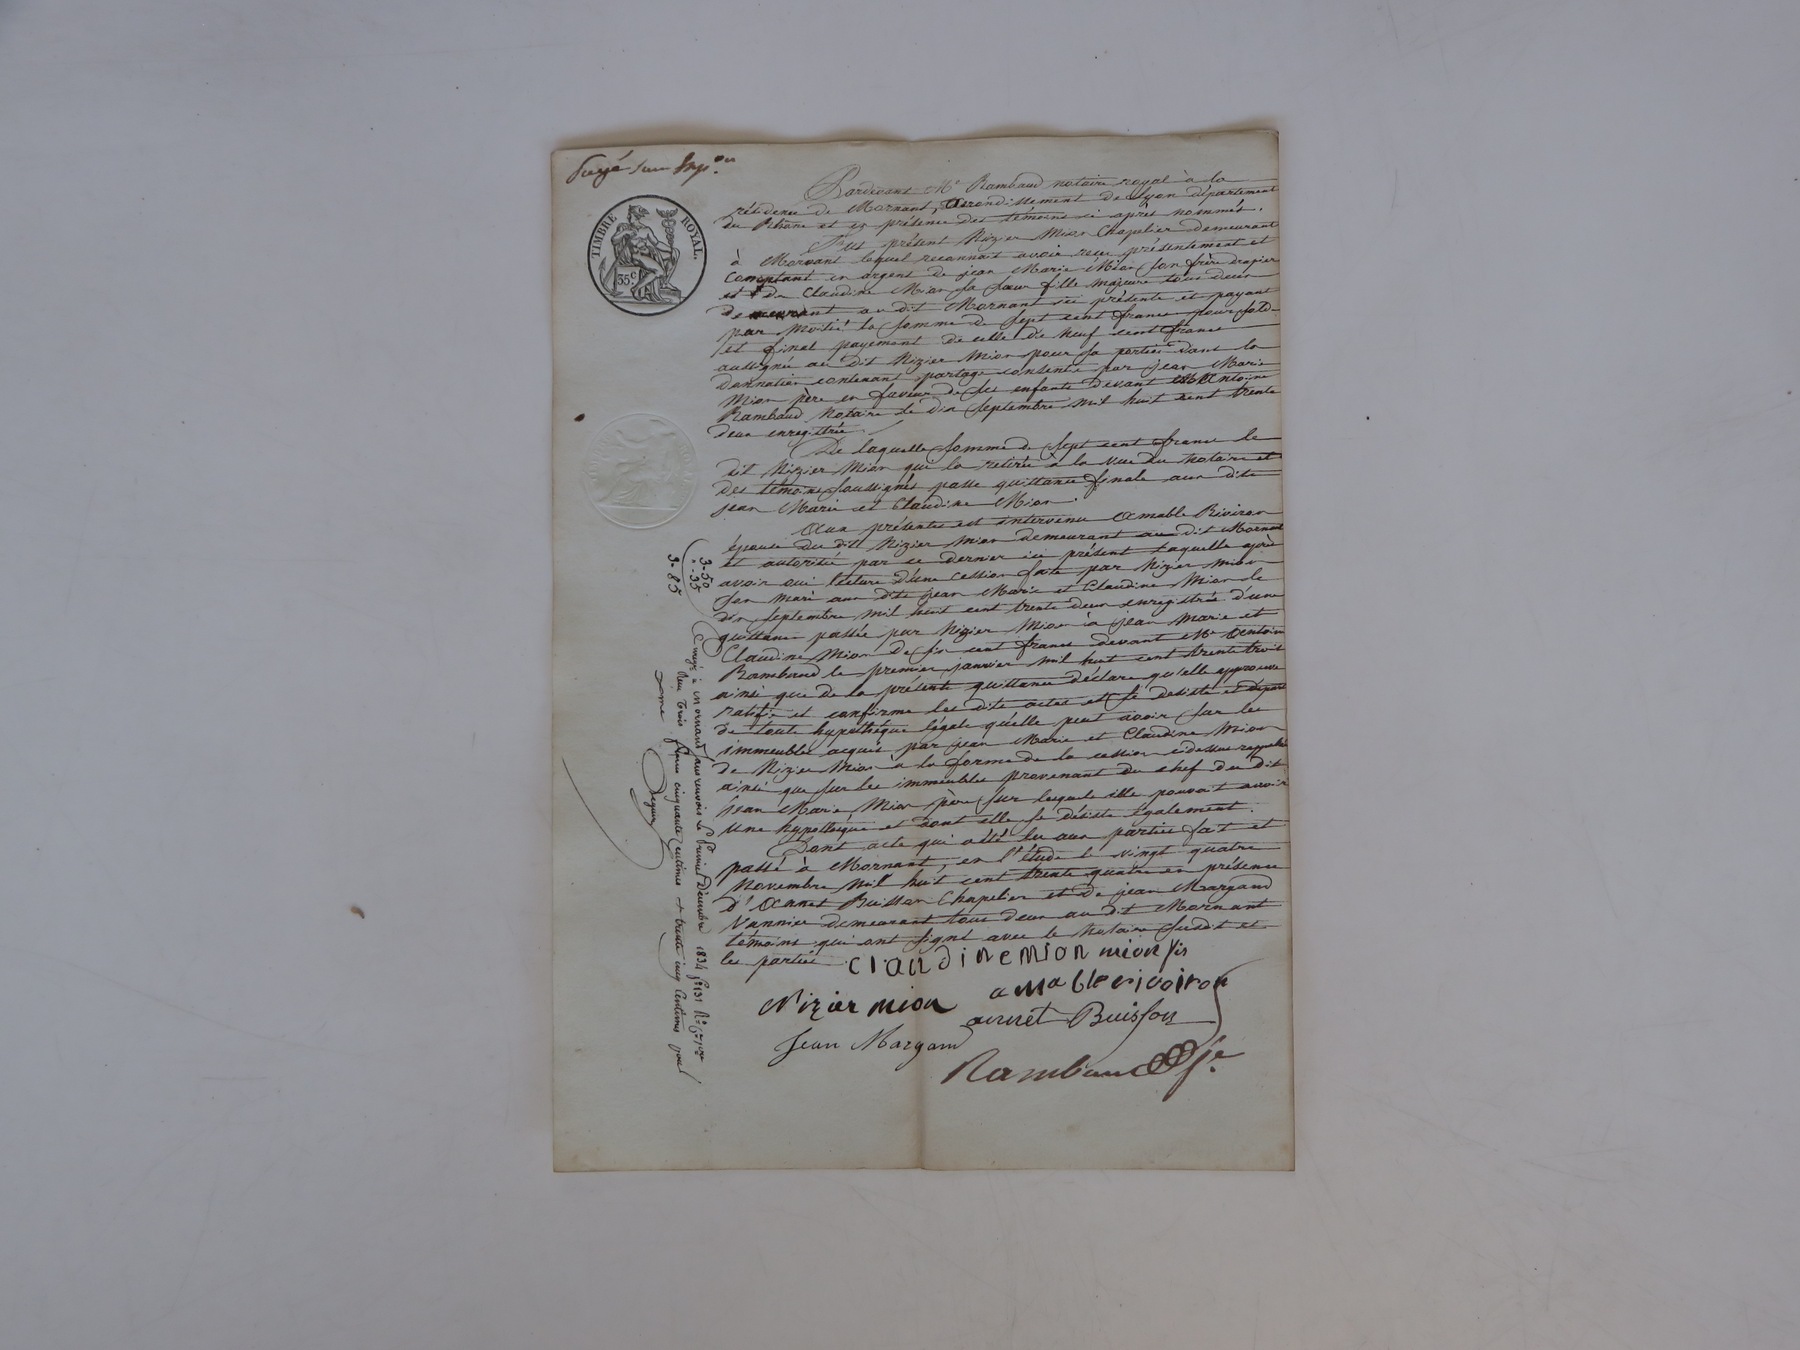 TIMBRE ROYAL.
35 c
Pardevant Me Rambaud notaire royal à la
résidence de Mornant, arrondissement de Lyon département
du Rhône et en présence des témoins ci après nommés.
Fut présent Nizier Mion Chapelier demeurant
à Mornant lequel reconnait avoir reçu présentement et
comptant en argent de jean Marie Mion son frère drapier
et de Claudine Mion sa sœur fille majeure tous deux
demeurant au dit Mornant ici présents et payant
par moitié la somme de sept cent francs pour solde
et final payement de celle de neuf cent francs
assignée au dit Nizier Mion pour sa portion dans la
donnation contenant partage consentie par jean Marie
Mion père en faveur de ses enfants devant Me Antoine
Rambaud notaire le dix septembre mil huit cent trente
deux enregistrée.
De laquelle somme de sept cent francs le
dit Nizier Mion qui la retirée à la vue du notaire et
des témoins soussignés passe quittance finale aux dits
jean Marie et Claudine Mion.
Aux présentes est intervenu Amable Riviron
épouse du dit Nizier Mion demeurant au dit Mornant
et autorisée par ce dernier ici présent laquelle après
avoir oui lecture d'une cession faite par Nizier Mion
son mari aux dits jean Marie et Claudine Mion le
dix septembre mil huit cent trente deux enregistrée d'une
quittance passée par Nizier Mion à jean Marie et
Claudine Mion de six cent francs devant Me Antoine
Rambaud le premier janvier mil huit cent trente trois
ainsi que de la présente quittance déclare qu'elle approuve
ratifie et confirme les dits actes et se désiste et départ
de toute hypothèque légale qu'elle peut avoir sur les
immeubles acquis par jean Marie et Claudine Mion
de Nizier Mion à la forme de la cession cidessus rappelée
ainsi que sur les immeubles provenant du chef du dit
jean Marie Mion père sur lesquels elle pouvait avoir
une hypothèque et dont elle se désiste également.
Dont acte qui a été lu aux parties fait et
passé à Mornant, en l'étude le vingt quatre
Novembre mil huit cent trente quatre en présence
d'Annet Buisson Chapelier et de jean Margand
Vannier demeurant tous deux au dit Mornant
témoins qui ont signé avec le notaire susdit et
les parties.
claudine mion mion fis
Nizier mion amable rivoiron
annet Buisson
Jean Margand
Rambaud
3-50
-35
3-85
Enregé à Mornand sans renvois le premier Décembre 1834 fo 131
Reçu trois francs cinquante centimes et trente cinq centimes pour